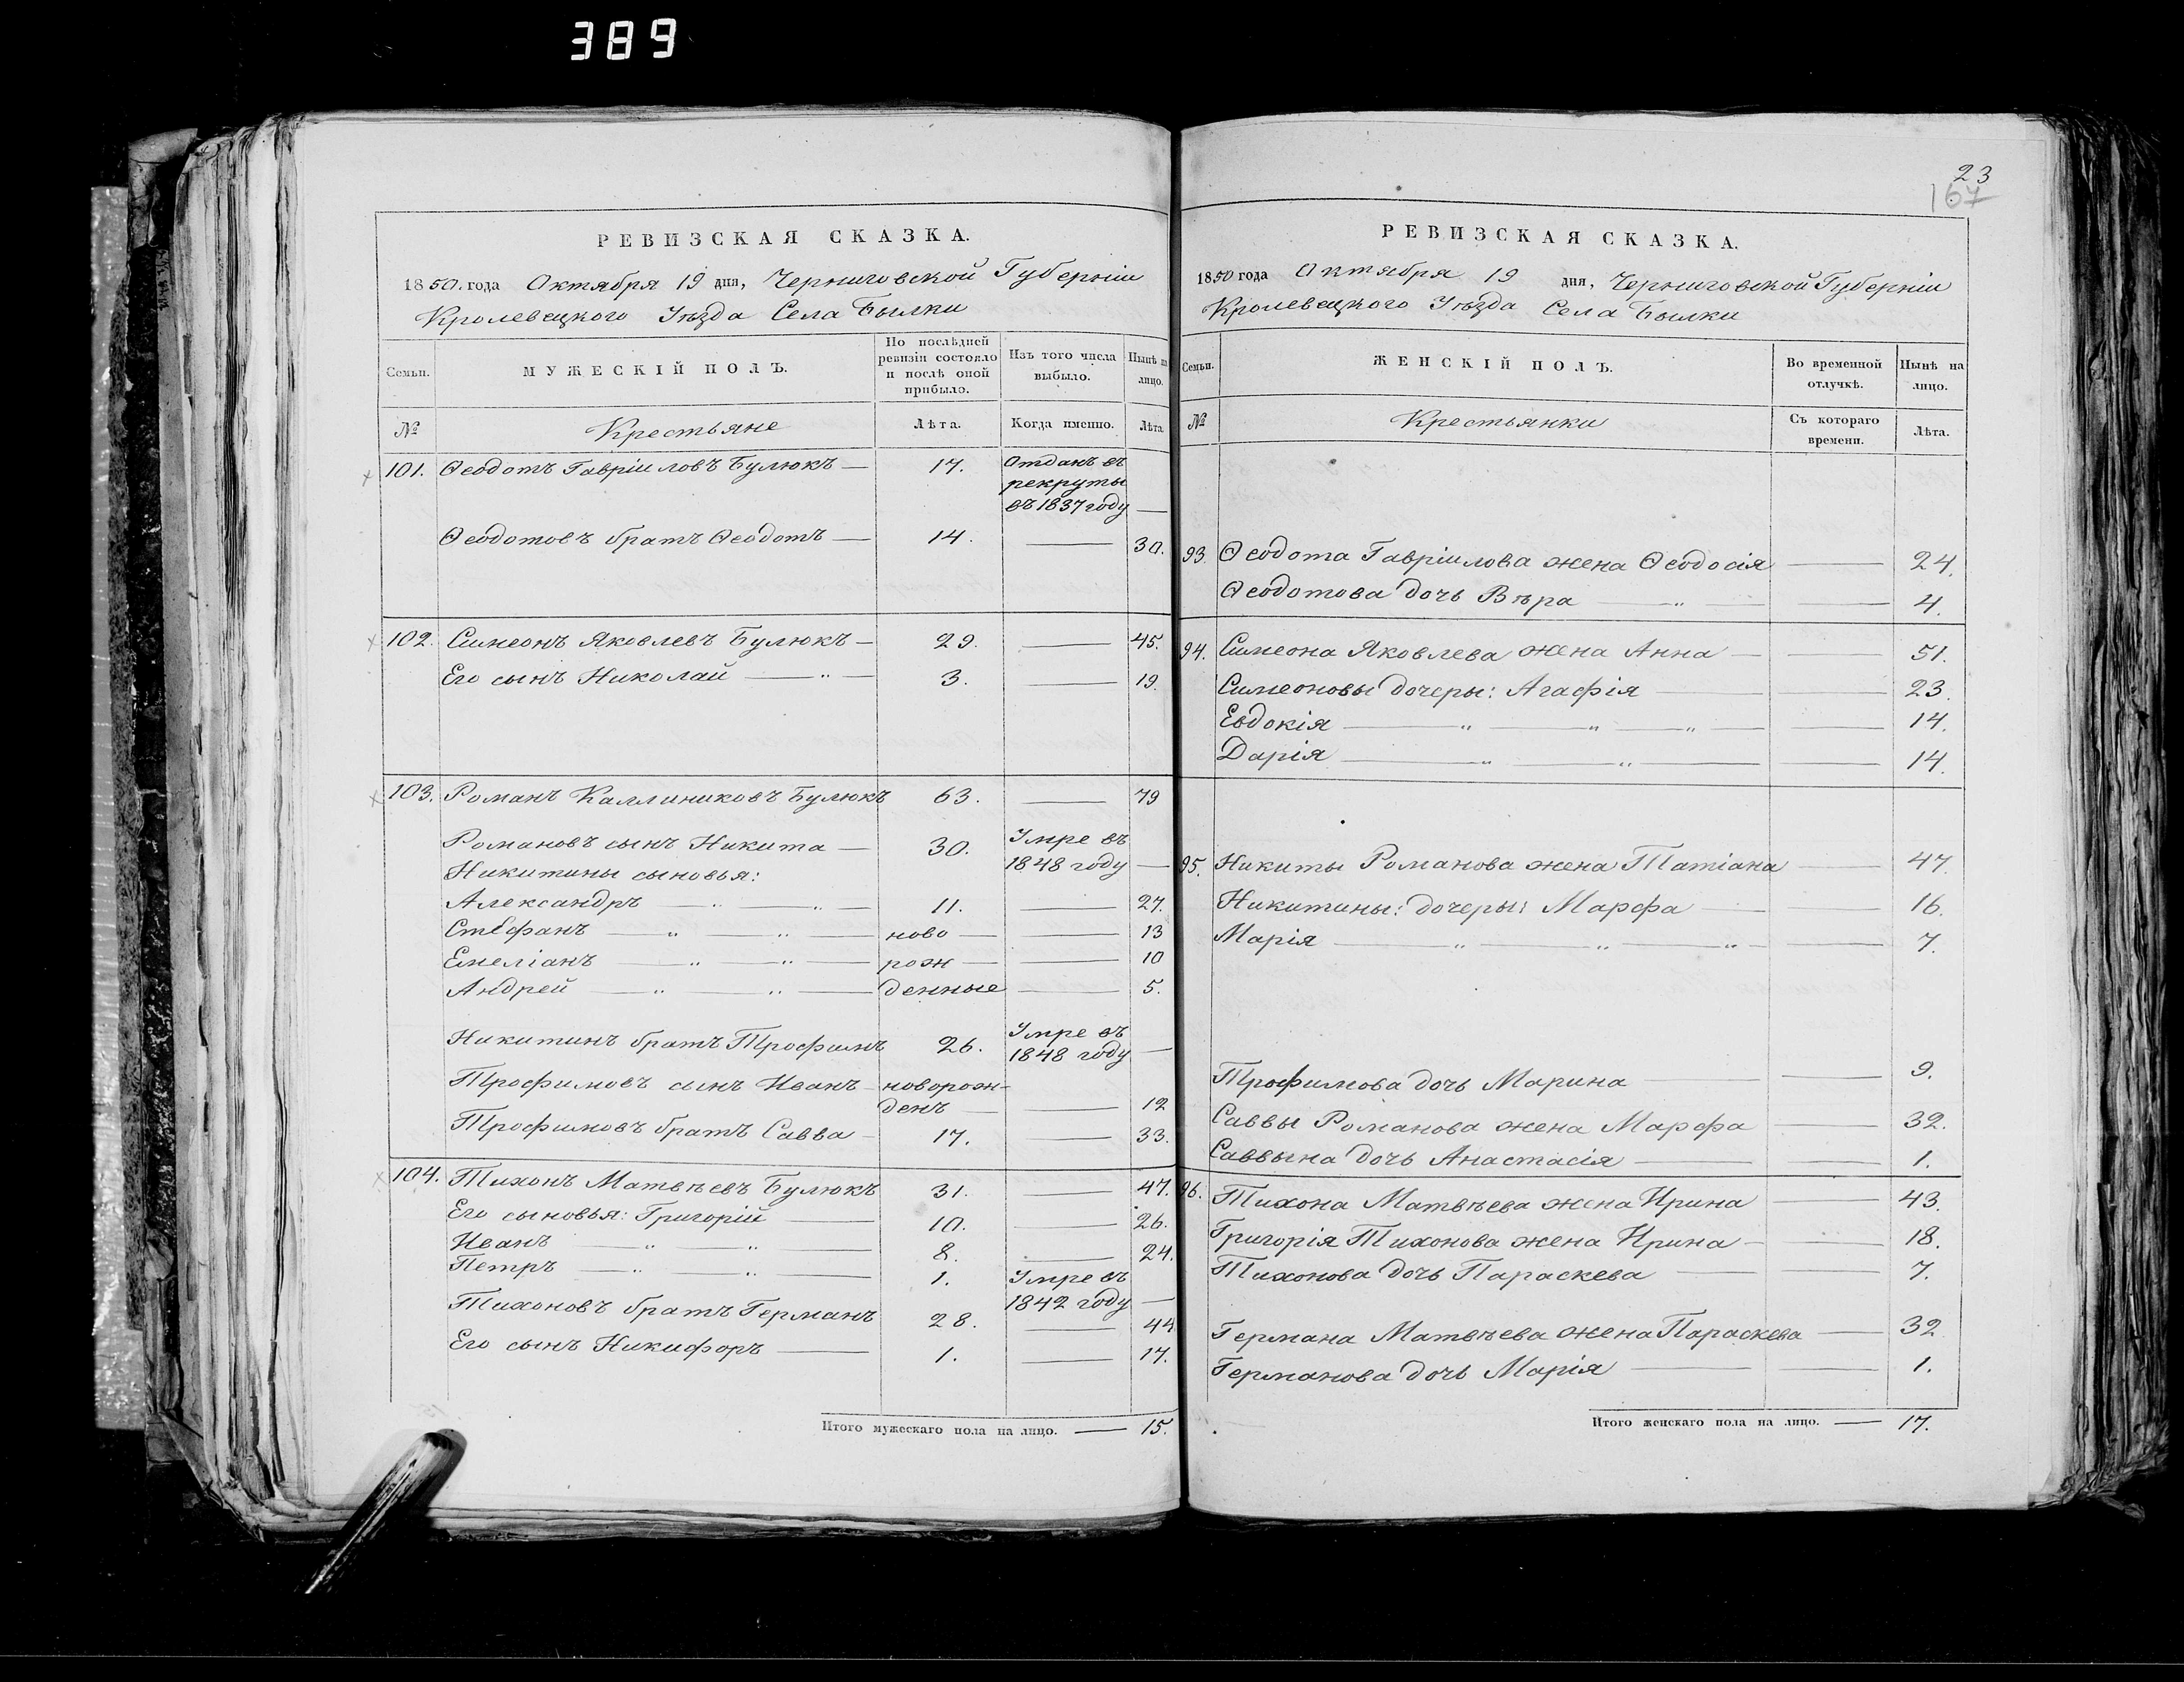 389
РЕВИЗСКАЯ СКАЗКА.
1850 года Октября 19 дня, Черниговской Губерніи
Кролевецкого Уѣзда Села Былки
Семьи. МУЖЕСКІЙ ПОЛЪ. По послѣдней ревизіи состояло и послѣ оной прибыло. Изъ того числа выбыло. Нынѣ на лицо.
№ Крестьяне Лѣта. Когда именно. Лѣта.
101. Ѳеодотъ Гавріиловъ Булюкъ — 17. Отданъ въ
рекруты
въ 1837 году —
Ѳеодотовъ братъ Ѳеодотъ — 14. — 30.
102. Симеонъ Яковлевъ Булюкъ — 29. — 45.
Его сынъ Николай — „ — 3. — 19.
103. Романъ Каллиниковъ Булюкъ 63. — 79
Романовъ сынъ Никита — 30. Умре въ
1848 году —
Никитины сыновья:
Александръ — „ — „ — 11. — 27.
Стефанъ — „ — „ — ново — — 13
Емеліанъ — „ — „ — рож — — 10
Андрей — „ — „ — денные — 5.
Никитинъ братъ Трофимъ 26. Умре въ
1848 году —
Трофимовъ сынъ Иванъ — новорож-
денъ — — 12
Трофимовъ братъ Савва — 17. — 33.
104. Тихонъ Матвѣевъ Булюкъ 31. — 47.
Его сыновья: Григорій — 10. — 26.
Иванъ „ „ — 8. — 24.
Петръ — „ — „ — 1. Умре въ
1842 году —
Тихоновъ братъ Германъ 28. — 44
Его сынъ Никифоръ — 1. — 17.
Итого мужескаго пола на лицо. — 15.
23
167
РЕВИЗСКАЯ СКАЗКА.
1850 года Октября 19 дня, Черниговской Губерніи
Кролевецкого Уѣзда Села Былки
Семьи. ЖЕНСКІЙ ПОЛЪ. Во временной отлучкѣ. Нынѣ на лицо.
№ Крестьянки Съ котораго времени. Лѣта.
93. Ѳеодота Гавріилова жена Ѳеодосія — 24.
Ѳеодотова дочь Вѣра — „ — — 4.
94. Симеона Яковлева жена Анна — — 51.
Симеоновы дочеры: Агафія — — 23.
Евдокія — „ — „ — „ — — 14.
Дарія — „ — „ — — 14.
95. Никиты Романова жена Татіана — 47.
Никитины: дочеры: Марфа — — 16.
Марія — „ — „ — „ — — 7.
Трофимова дочь Марина — — 9.
Саввы Романова жена Марфа — 32.
Саввына дочь Анастасія — — 1.
96. Тихона Матвѣева жена Ирина — 43.
Григорія Тихонова жена Ирина — — 18.
Тихонова дочь Параскева — — 7.
Германа Матвѣева жена Параскева — 32
Германова дочь Марія — — 1.
Итого женскаго пола на лицо. — 17.